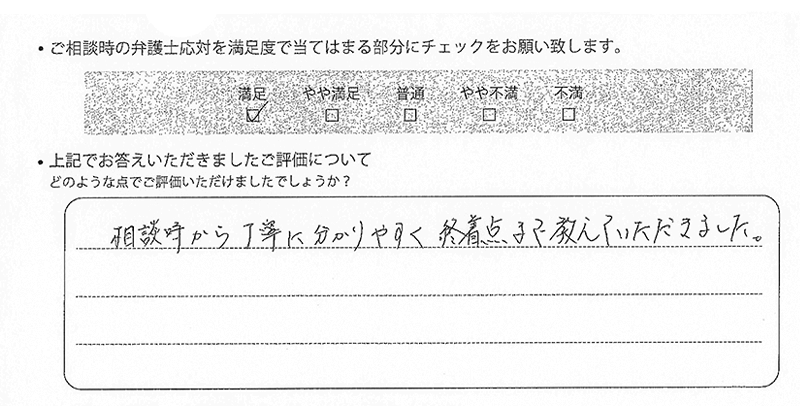 ・ご相談時の弁護士応対を満足度で当てはまる部分にチェックをお願い致します。
満足 やや満足 普通 やや不満 不満
☑ □ □ □ □
・上記でお答えいただきましたご評価について
どのような点でご評価いただけましたでしょうか？
相談時から丁寧に分かりやすく終着点まで教えていただきました。